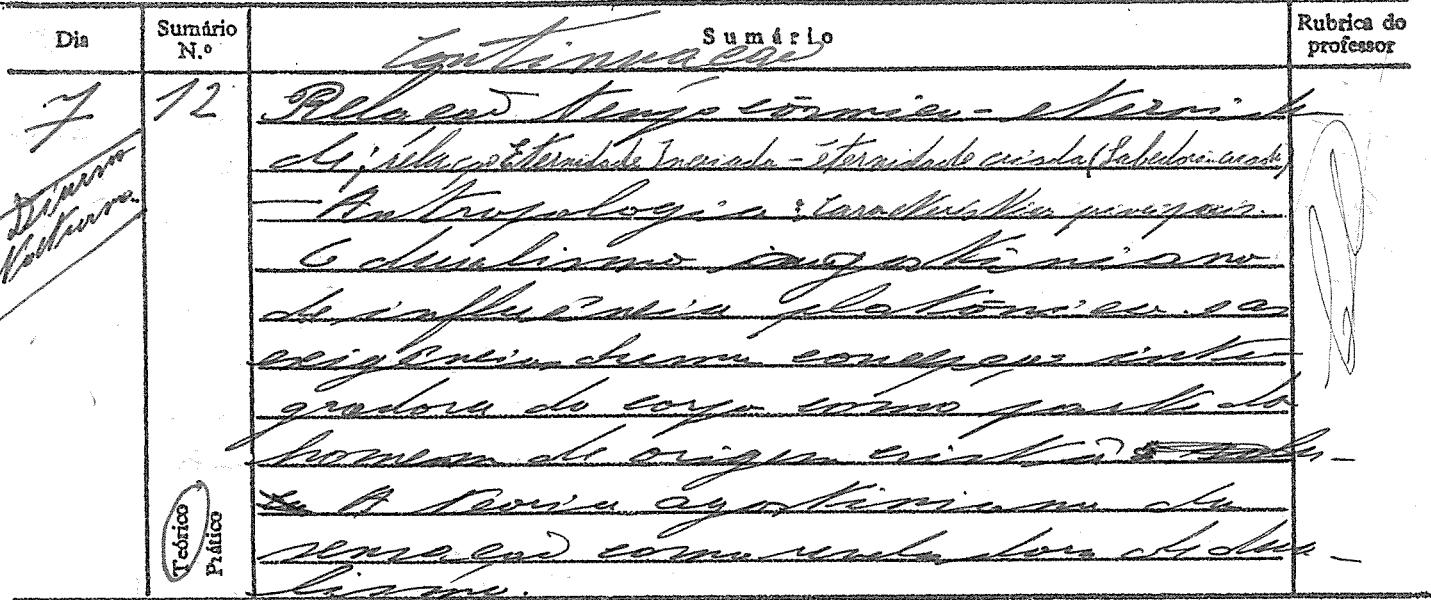 Dia
Sumário N.º
Sumário
Rubrica do professor
Continuação
7
12
Diurno
Nocturno
Relação tempo cósmico - eternida
de; relação Eternidade Incriada - eternidade criada (Sabedoria criada)
- Antropologia: características principais.
O dualismo agostiniano
de influência platónica e as
exigências duma concepção inte-
gradora do corpo como parte do
homem de origem cristã
A teoria agostiniana da
sensação como reveladora de dua-
lismo.
Teórico
Prático